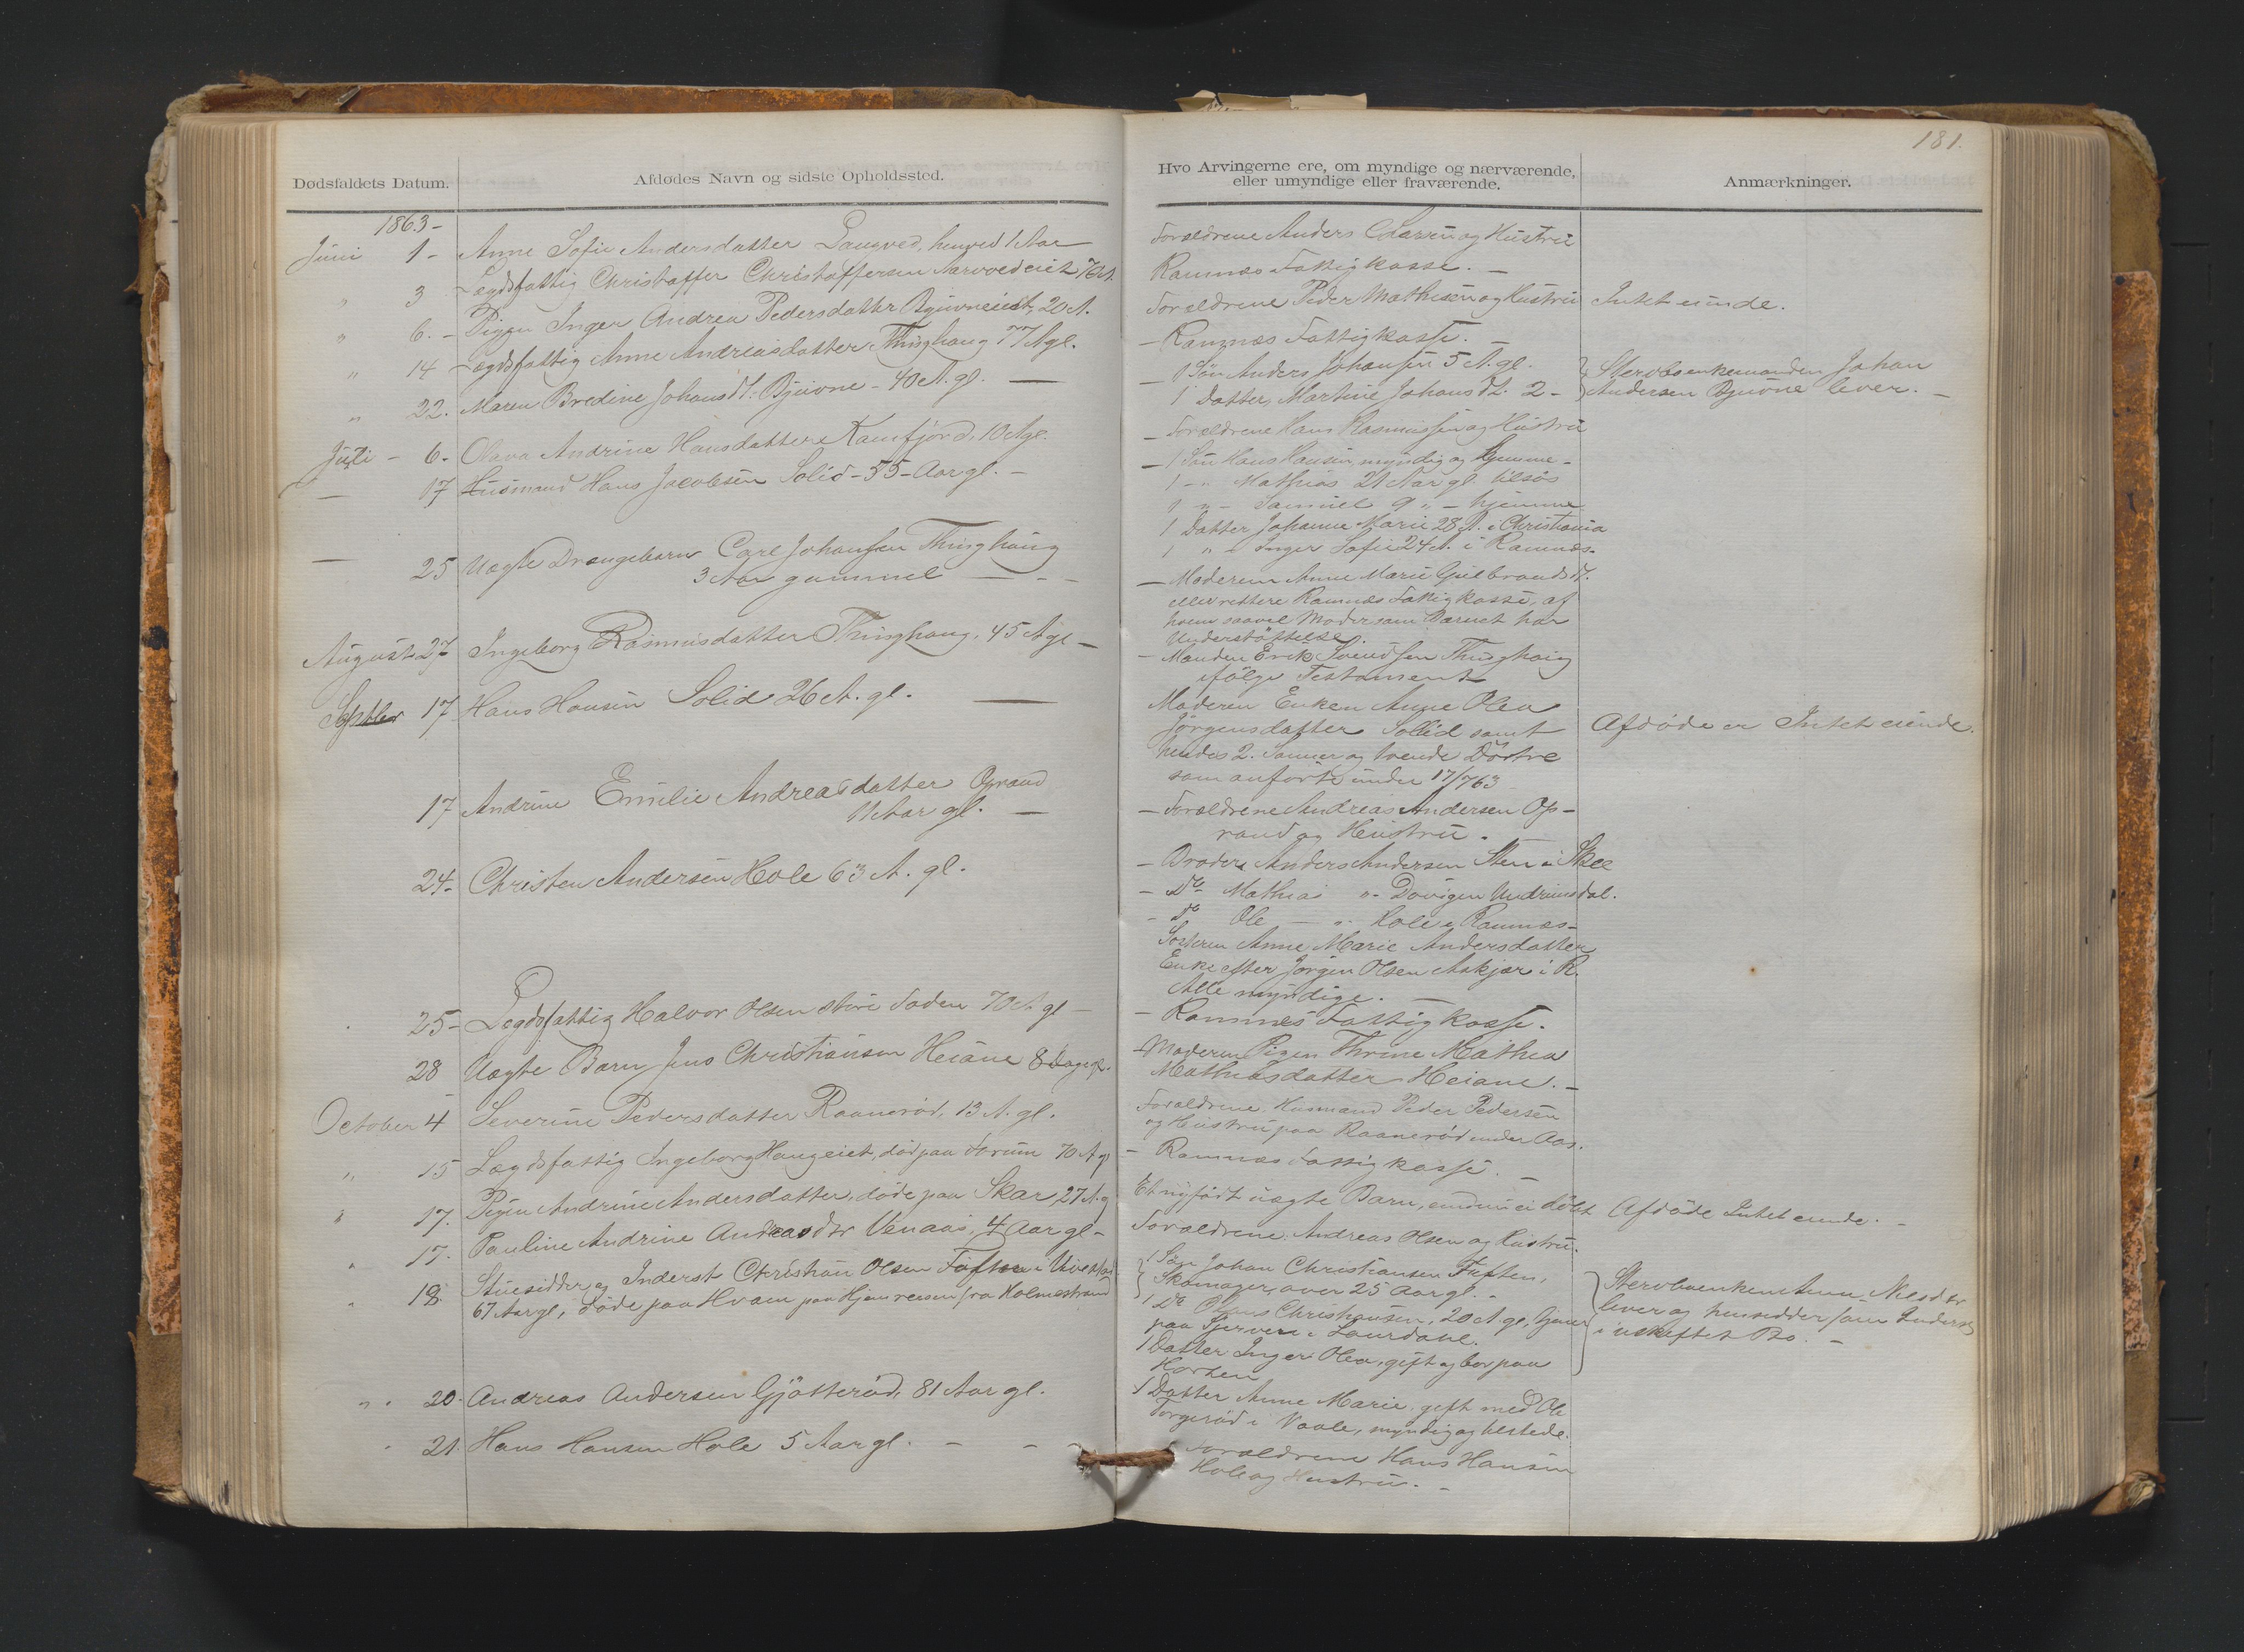 181.
Dødsfaldets Datum.
Afdødes Navn og sidste Opholdssted.
1863-
Juni 1- Anne Sofie Andersdatter Langved, henved 1 Aar
" 3 Lægdsfattig Christoffer Christoffersen Narvedeiet 76 A.
" 6.- Pigen Inger Andrea Pedersdatter Bjuvneeiet, 20 A.
" 14 Lægdsfattig Anne Andreasdatter Thinghaug 77 A gl.
" 22. Maren Bredine Johansdt. Bjuvne - 40 A. gl. —
Juli - 6. Olava Andrine Hansdatter Kamfjord, 10 A gl.
— 17 Husmand Hans Jacobsen Solid - 55 - Aar gl. -
— 25 Uægte Drengebarn Carl Johansen Thinghaug
3 Aar gammel — - -
August 27 Ingeborg Rasmusdatter Thinghaug, 45 A gl -
Septbr 17 Hans Hansen Solid 26 A. gl. —
17 Andrine Emilie Andreasdatter Oprand
11 Aar gl. —
24- Christen Andersen Hole 63 A. gl.
25- Lægdsfattig Halvor Olsen store Foden 70 A gl -
28 Uægte Barn Jens Christiansen Heiane 8 Dage gl.
October 4 Severine Pedersdatter Raanerød, 13 A. gl.
" 15 Lægdsfattig Ingeborg Haugeiet, død paa Forum 70 A g
" 17. Pigen Andrine Andersdatter, døde paa Skar, 27 A. g
" 17. Pauline Andrine Andreasdtr Venaas, 4 Aar gl -
" 18. Stuesidder og Inderst Christian Olsen Tuften i
67 Aar gl, døde paa Hvam paa Hjemreisen fra Holmestrand
" 20. Andreas Andersen Gjøtterød, 81 Aar gl.
" 21. Hans Hansen Hole 5 Aar gl. - -
Hvo Arvingerne ere, om myndige og nærværende,
eller umyndige eller fraværende.
Forældrene Anders Larsen og Hustru
Ramnæs Fattigkasse. -
Forældrene Peder Mathisen og Hustru
- Ramnæs Fattigkasse. -
- 1 Søn Anders Johansen 5 A. gl.
1 Datter Martine Johansdt. 2 -
- Forældrene Hans Rasmussen og Hustru
- 1 Søn Hans Hansen, myndig og hjemme -
1 -" Mathias 21 Aar gl. tilsøs
1 "- Samuel 9 " - hjemme
1 Datter Johanne Marie 28 A. i Christiania
1 " - Inger Sofie 24 A. i Ramnæs.
- Moderen Anne Marie Gulbrandsdt.
eller rettere Ramnæs Fattigkasse, af
hvem saavel Moder som Barnet har
Understøttelse.
- Manden Erik Svendsen Thinghaug
ifølge Testament
Moderen Enken Anne Olea
Jørgensdatter Sollid samt
hendes 2. Sønner og tvende Døttre
som anførte under 17/7 63
- Forældrene Andreas Andersen Op-
rand og Hustru.
- Broder Anders Andersen Steen i Skee
- Do Mathias " - Undrumsdal.
- Do Ole — " Hole i Ramnæs -
Søsteren Anne Marie Andersdatter
Enke efter Jørgen Olsen Askjær i R.
Alle myndige. —
- Ramnes Fattigkasse.
- Moderen Pigen Thrine Mathea
Mathiasdatter Heiane. -
Forældrene, Husmand Peder Pedersen
og Hustru paa Raanerød under Aas.
- Ramnæs Fattigkasse. -
Et nyfødt uægte Barn, endnu ei døbt
Forældrene Andreas Olsen og Hustru.
1 Søn Johan Christiansen Tuften,
Skomager, over 25 Aar gl. -
1 Do Hans Christiansen, 20 A gl, tjener
paa i Laurdahl.
1 Datter Inger Olea, gift og bor paa
Horten
1 Datter Anne Marie, gift med Ole
Torgerød i Vaale, myndig og tilstede.
Forældrene Hans Hansen
Hole og Hustru. -
Anmærkninger.
Intet eiende.
Stervboenkemanden Johan
Andersen Bjuvne lever. -
Afdøde er Intet eiende.
Afdøde Intet eiende. -
Stervboenken Anne Nilsdtr
lever og hensidder som Inderst
i uskiftet Bo. -